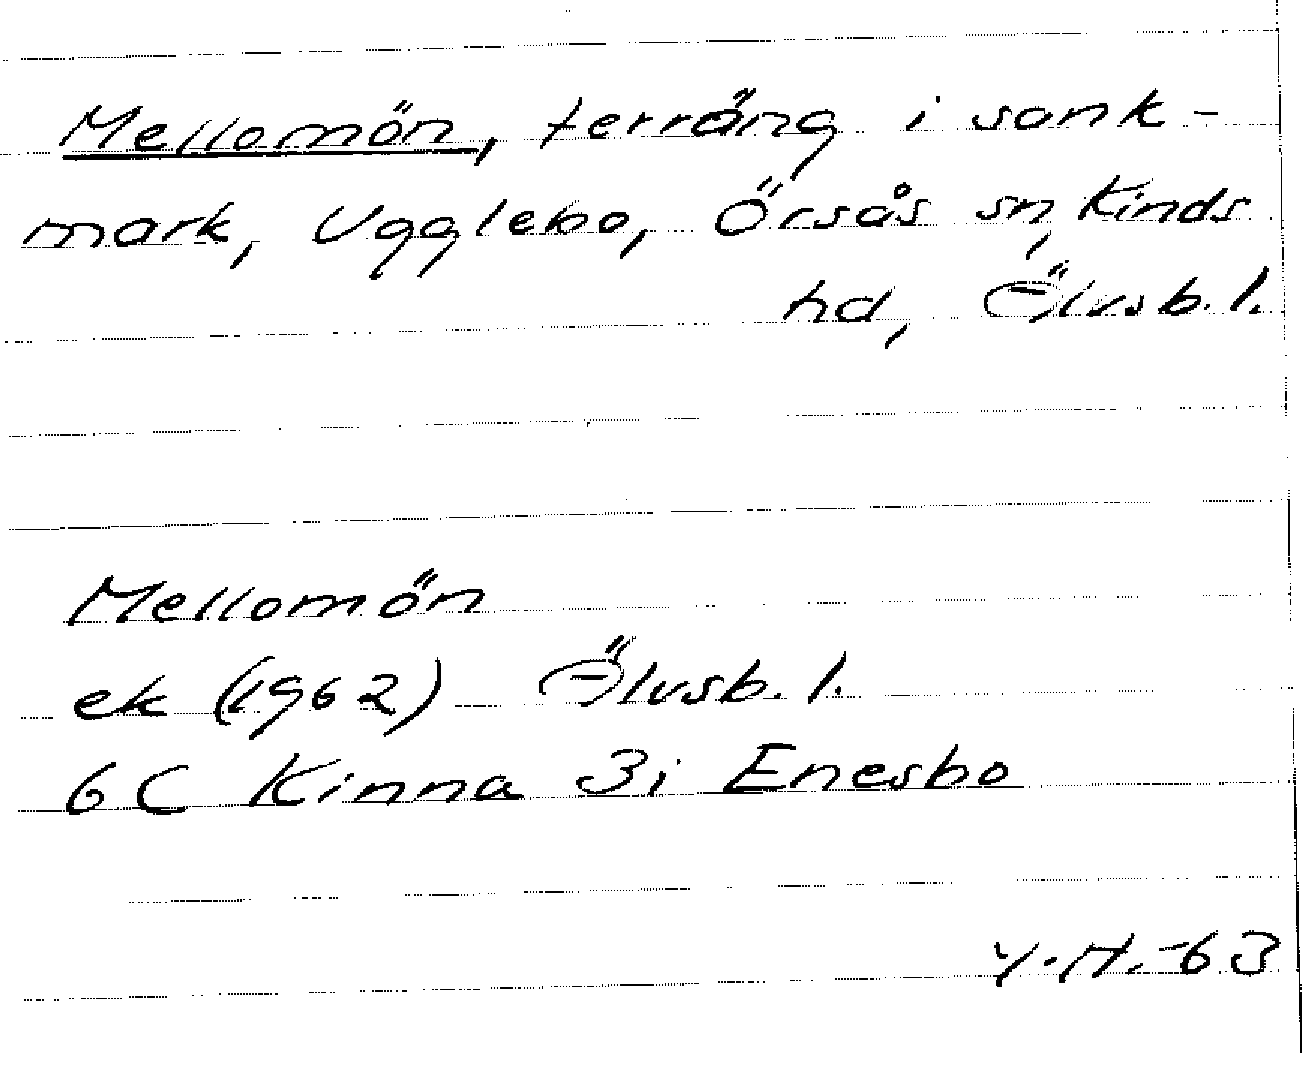 Mellomön, terräng i sank-
mark, Ugglebo, Örsås sn, Kinds
hd, Älvsb. l.
Mellomön
ek (1962) Älvsb. l.
6C Kinna 3i Enesbo
Y.H.-63